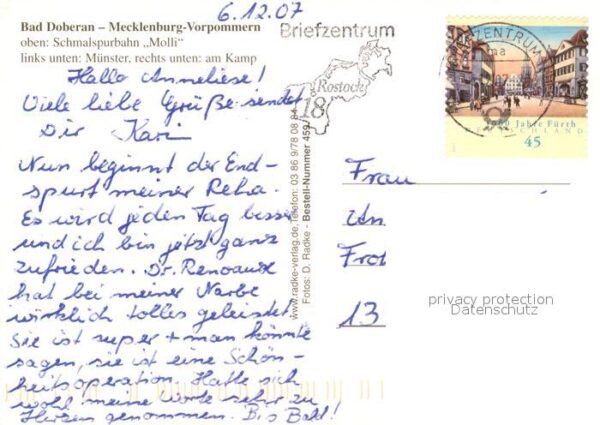 6.12.07
Bad Doberan – Mecklenburg-Vorpommern
oben: Schmalspurbahn „Molli“
links unten: Münster, rechts unten: am Kamp
Hallo Anneliese!
Viele liebe Grüße sendet
Dir Kari
Nun beginnt der End-
spurt meiner Reha.
Es wird jeden Tag besser
und ich bin jetzt ganz
zufrieden. Dr.
hat bei meiner Narbe
wirklich tolles geleistet!
Sie ist super + man könnte
sagen, sie ist eine Schön-
heitsoperation. Hatte sich
wohl meine Worte sehr zu
Herzen genommen. Bis Bald!
www.radke-verlag.de, Telefon: 03 86 9/78 08 84
Fotos: D. Radke - Bestell-Nummer 459
Briefzentrum
Rostock
18
BRIEFZENTRUM
1000 Jahre Fürth
DEUTSCHLAND
45
Frau
An
Fra
13
privacy protection
Datenschutz